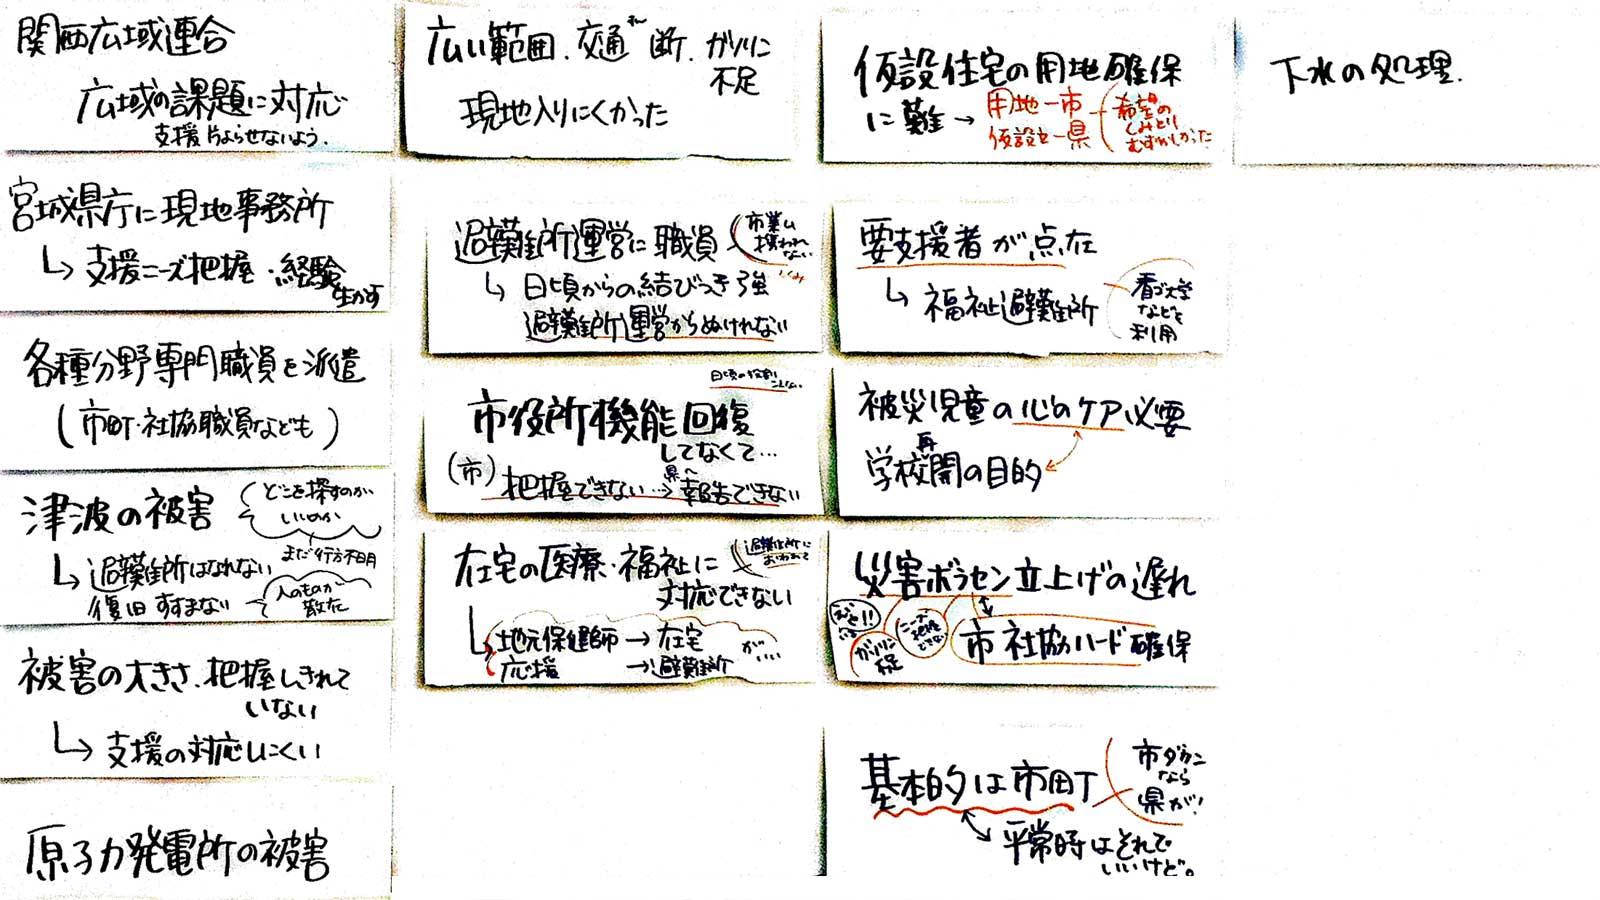 関西広域連合
広域の課題に対応
支援片よらせないよう.
宮城県庁に現地事務所
↳ 支援ニーズ把握・経験
生かす
各種分野専門職員を派遣
(市町・社協職員なども)
津波の被害
どこを探すのか
いいのか
まだ行方不明
↳ 避難所はなれない
復旧 すすまない
人のものが
散在
被害の大きさ.把握しきれて
いない
↳ 支援の対応しにくい
原子力発電所の被害
広い範囲.交通 断.ガソリン
不足
現地入りにくかった
避難所運営に職員
市業ム
携われ
ない
↳ 日頃からの結びつき強
避難所運営からぬけれない
市役所機能回復
してなくて…
(市) 把握できない → 県へ
報告できない
在宅の医療・福祉に
対応できない
避難所に
おわれて
↳ 地元保健師 → 在宅
応援 → 避難所
が….
仮設住宅の用地確保
に難 → 用地ー市
仮設ー県
希望の
くみとり
むずかしかった
要支援者が点在
↳ 福祉避難所
看ゴ大学
などを
利用
被災児童の心のケア必要
学校再開の目的
災害ボラセン立上げの遅れ
ガソリン
不足
市 社協ハード確保
基本的は市町
市ダウン
なら
県が!
平常時はそれで
いいけど。
下水の処理.